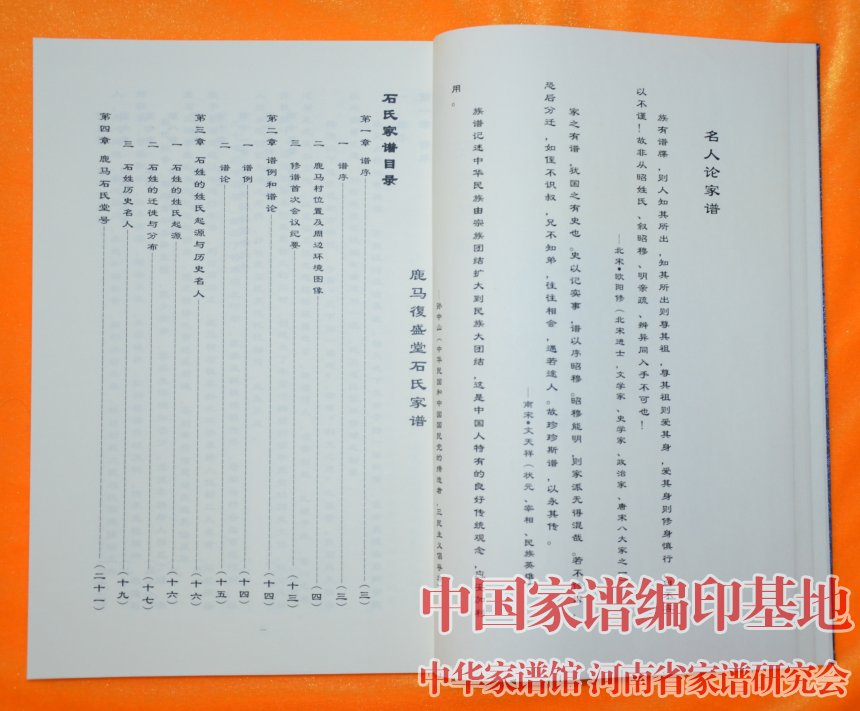 名人论家谱
族有谱牒，则人知其所出，知其所出则尊其祖，尊其祖则爱其身，爱其身则修身慎行，
以不谨！故非从昭姓氏、叙昭穆、明亲疏、辨异同入手不可也！
—北宋•欧阳修（北宋进士，文学家、史学家、政治家、唐宋八大家之一
家之有谱，犹国之有史也。史以记实事，谱以序昭穆。昭穆能明，则家派无得混哉。若不
恐后分迁，如侄不识叔，兄不知弟，往往相会，遇若途人。故珍珍斯谱，以永其传。
—南宋•文天祥（状元、宰相、民族英雄
族谱记述中华民族由宗族团结扩大到民族大团结，这是中国人特有的良好传统观念，应
用。
—孙中山（中华民国和中国国民党的缔造者，三民主义倡导
鹿马復盛堂石氏家谱
石氏家谱目录
第一章 谱序（三）
一 谱序（三）
二 鹿马村位置及周边环境图像（四）
三 修谱首次会议纪要（十三）
第二章 谱例和谱论（十四）
一 谱例（十四）
二 谱论（十五）
第三章 石姓的姓氏起源与历史名人（十六）
一 石姓的姓氏起源（十六）
二 石姓的迁徙与分布（十七）
三 石姓历史名人（十九）
第四章 鹿马石氏堂号（二十一）
一
中国家谱编印基地
中华家谱馆 河南省家谱研究会